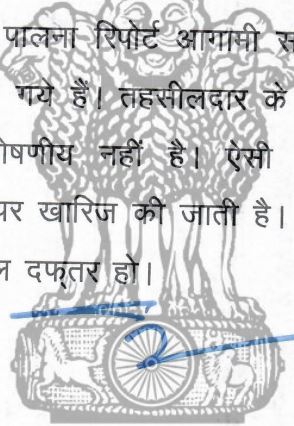 पालना रिपोर्ट आगामी
गये हैं। तहसीलदार के
नहीं है। ऐसी
खारिज की जाती है।
दफ्तर हो।